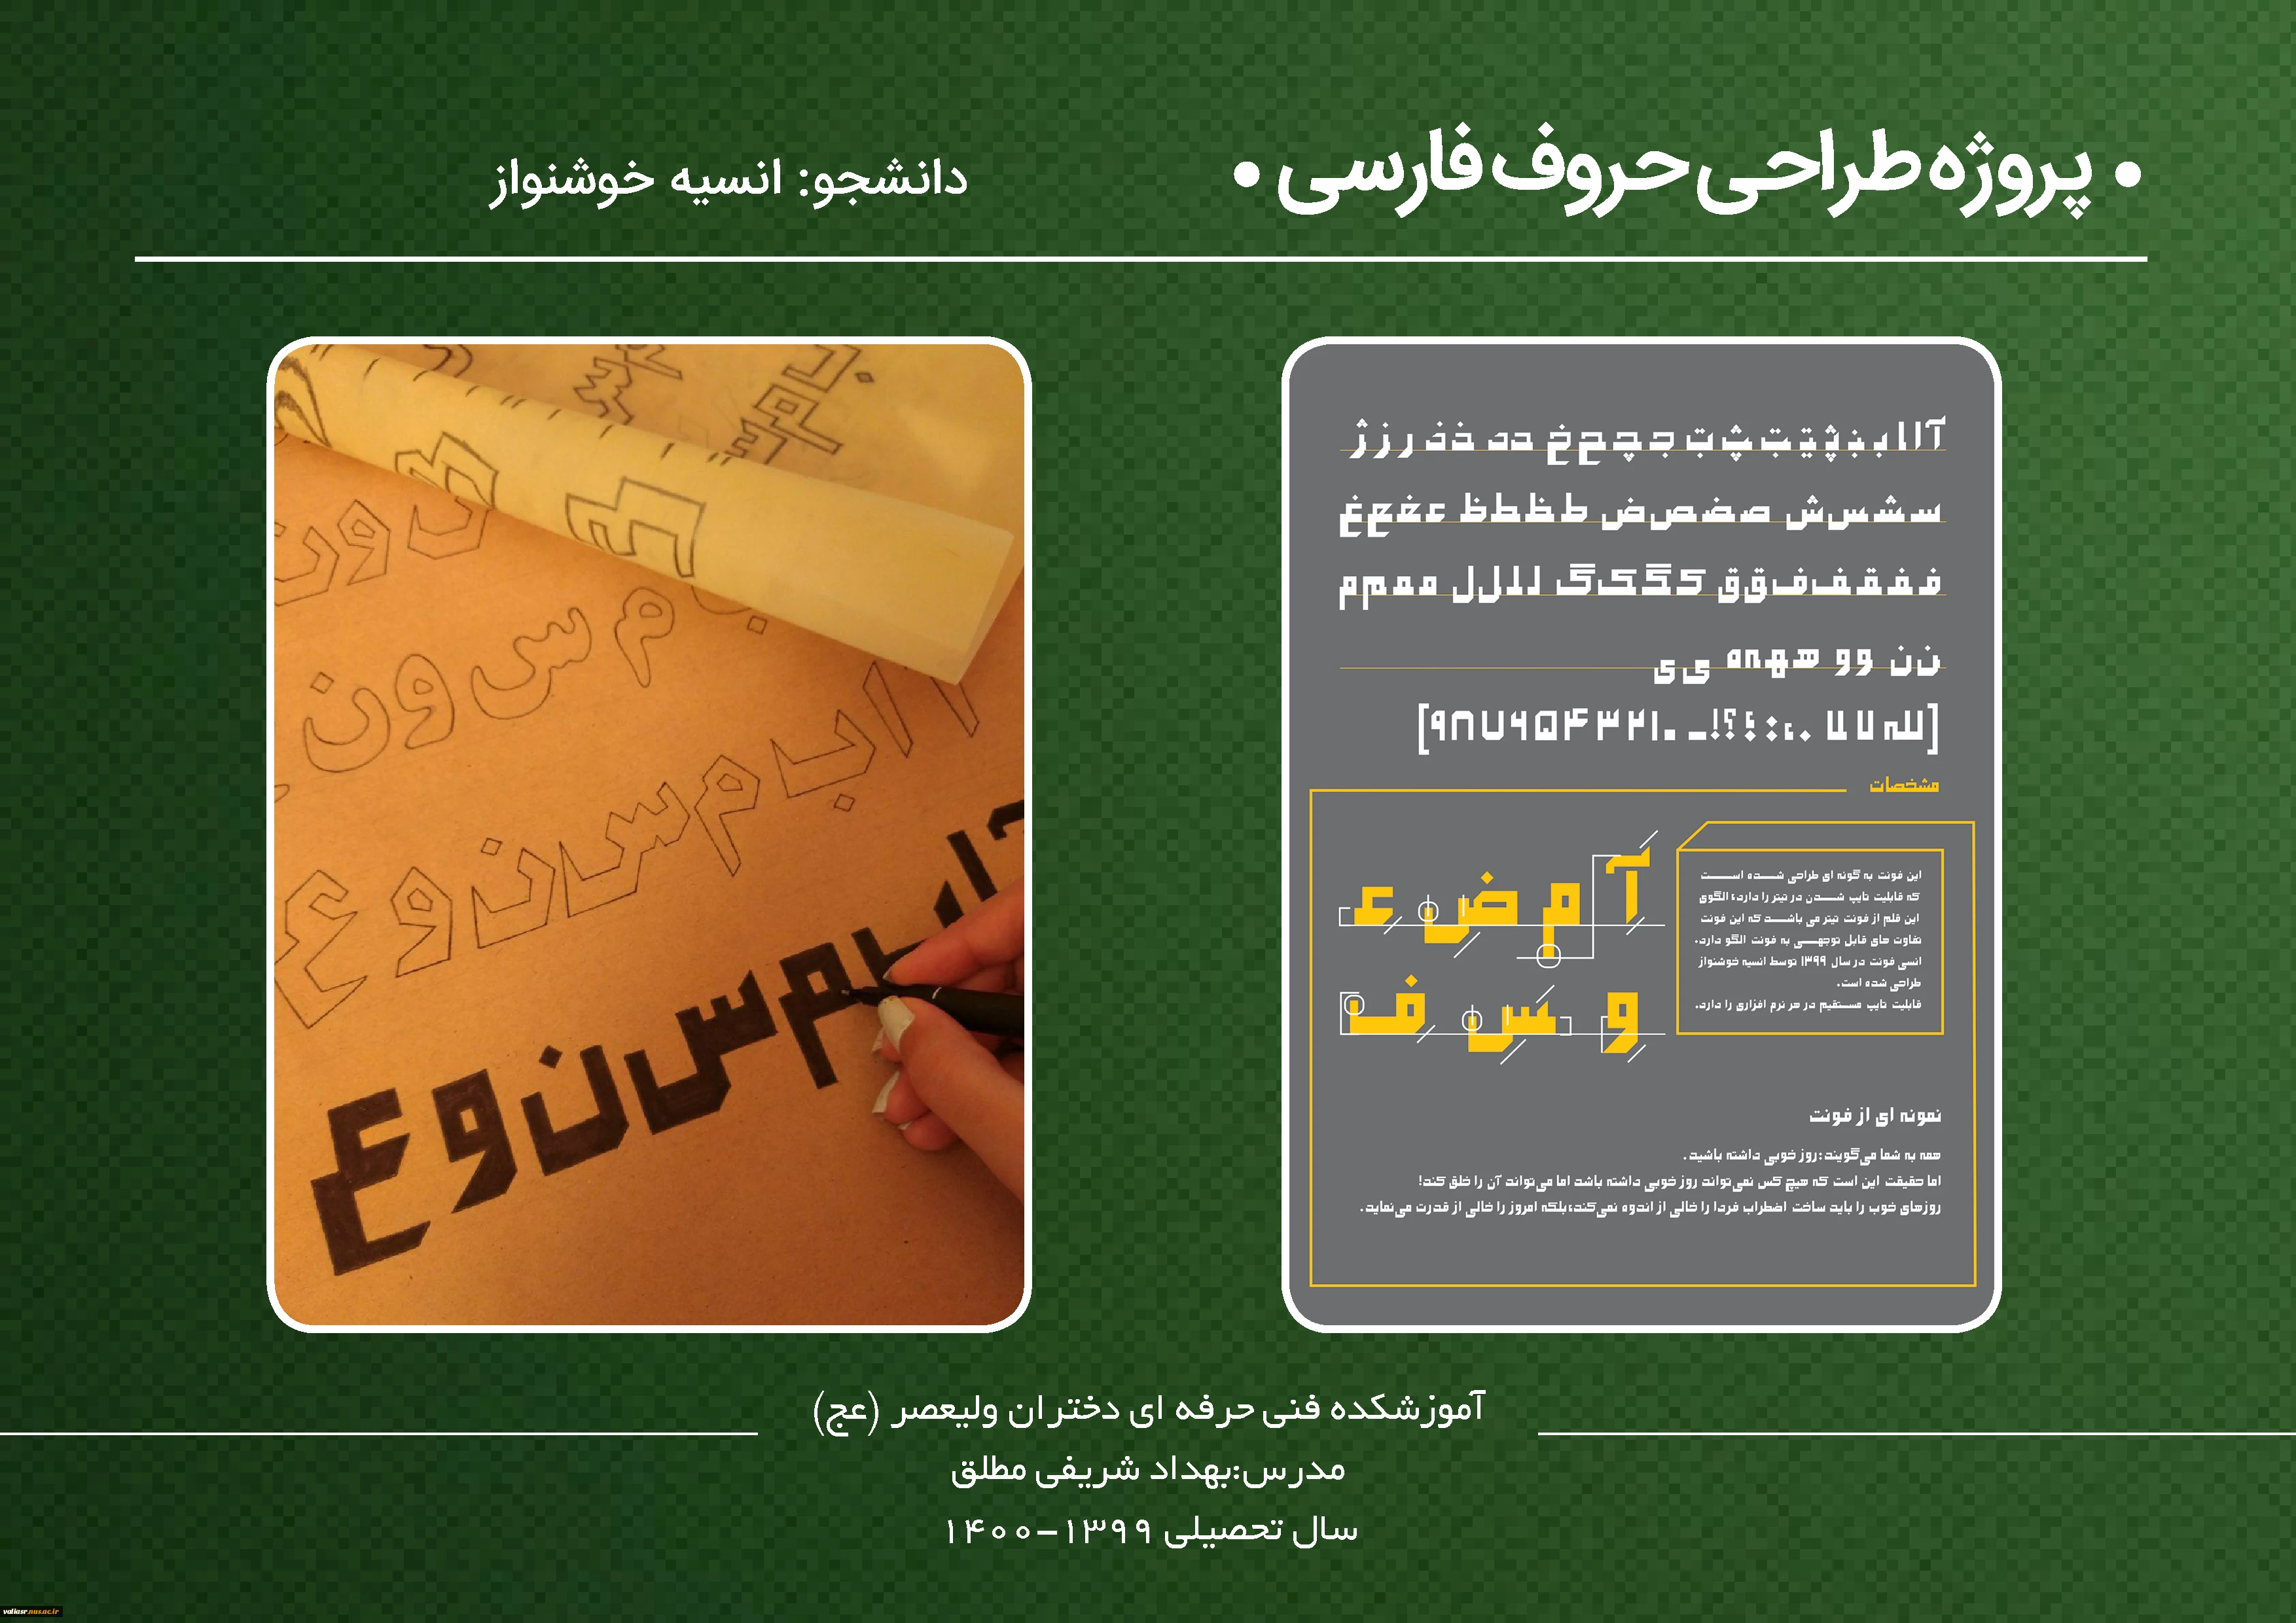 • پروژه طراحی حروف فارسی •
دانشجو: انسیه خوشنواز
سشسش صضصض طظطظ عغعغ
ففقففقق ککگگ للل ممم
نن وو ههه یی
مشخصات
این فونت به گونه ای طراحی شده است
که قابلیت تایپ شدن در تیتر را دارد؛ الگوی
این قلم از فونت تیتر می باشد که این فونت
تفاوت های قابل توجهی به فونت الگو دارد.
انسی فونت در سال ۱۳۹۹ توسط انسیه خوشنواز
طراحی شده است.
قابلیت تایپ مستقیم در هر نرم افزاری را دارد.
آ م ض ع
و س ف
نمونه ای از فونت
همه به شما می‌گویند:روز خوبی داشته باشید.
اما حقیقت این است که هیچ کس نمی‌تواند روز خوبی داشته باشد اما می‌تواند آن را خلق کند!
روزهای خوب را باید ساخت اضطراب فردا را خالی از اندوه نمی‌کند،بلکه امروز را خالی از قدرت می‌نماید.
ا ا ب م س ن و ع
م س ن و ع
آموزشکده فنی حرفه ای دختران ولیعصر (عج)
مدرس:بهداد شریفی مطلق
سال تحصیلی ۱۳۹۹-۱۴۰۰
valiasr.nus.ac.ir